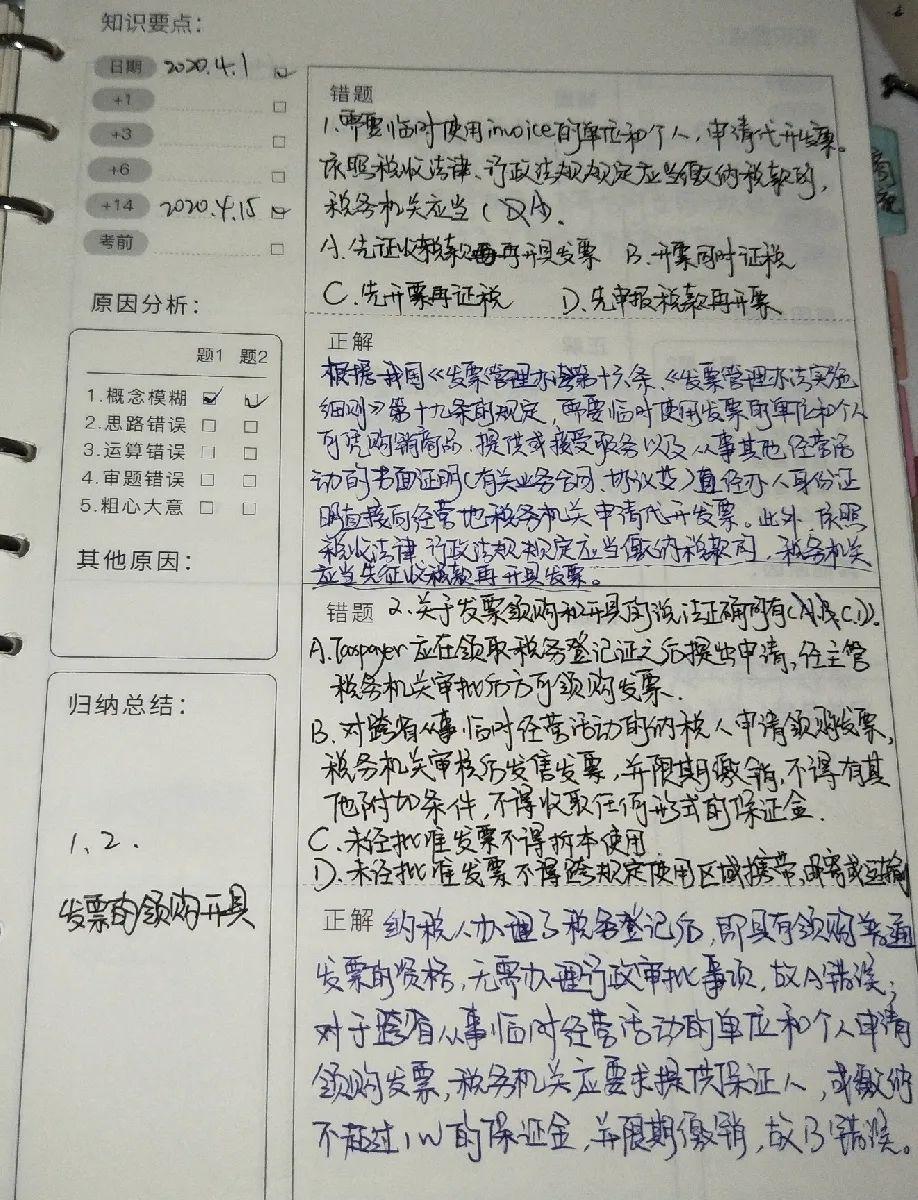 知识要点：
日期 2020.4.1
+1
+3
+6
+14 2020.4.15
考前
原因分析：
题1 题2
1.概念模糊
2.思路错误
3.运算错误
4.审题错误
5.粗心大意
其他原因：
归纳总结：
1、2.
发票的领购开具
错题
1.需要临时使用invoice的单位和个人，申请代开发票。
依照税收法律、行政法规规定应当缴纳税款的，
税务机关应当（A）。
A.先证收税款再开具发票 B.开票同时证税
C.先开票再证税 D.先申报税款再开票
正解
根据我国《发票管理办法》第十六条、《发票管理办法实施
细则》第十九条的规定，需要临时使用发票的单位和个人
可凭购销商品、提供或接受服务以及从事其他经营活
动的书面证明（有关业务合同、协议等）、经办人身份证
明直接向经营地税务机关申请代开发票。此外，依照
税收法律、行政法规规定应当缴纳税款的，税务机关
应当先征收税款再开具发票。
错题 2.关于发票领购和开具的说法正确的有（C.D）。
A.Taxpayer应在领取税务登记证之后提出申请，经主管
税务机关审批后方可领购发票.
B.对跨省从事临时经营活动的纳税人申请领购发票，
税务机关审核后发售发票，并限期缴销，不得有其
他附加条件，不得收取任何形式的保证金.
C.未经批准发票不得拆本使用.
D.未经批准发票不得跨规定使用区域携带、邮寄或运输
正解 纳税人办理了税务登记后，即具有领购普通
发票的资格，无需办理行政审批事项，故A错误；
对于跨省从事临时经营活动的单位和个人申请
领购发票，税务机关应要求提供保证人，或缴纳
不超过1W的保证金，并限期缴销，故B错误。